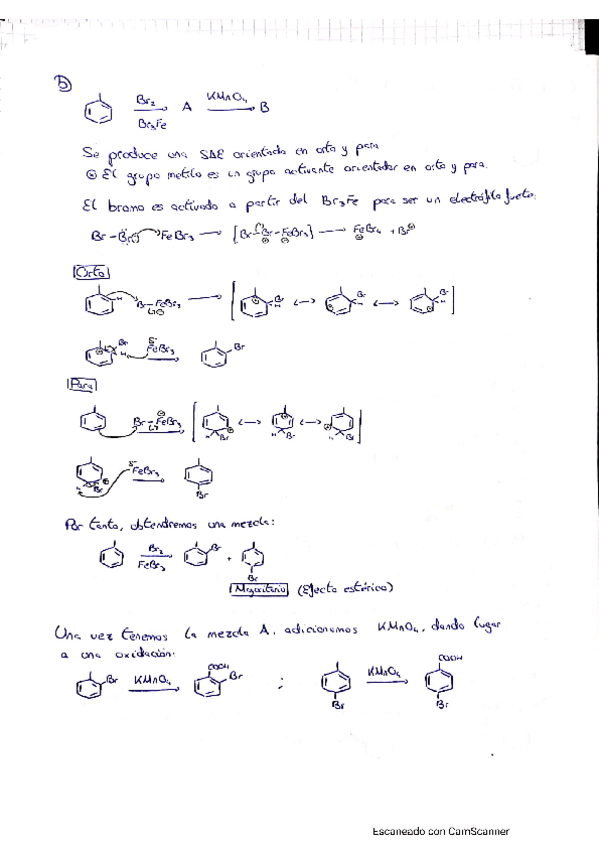 b)
Br₂ KMnO₄
A B
Br₃Fe
Se produce una SAE orientada en orto y para
⊙ El grupo metilo es un grupo activante orientador en orto y para.
El bromo es activado a partir del Br₃Fe para ser un electrófilo fuerte:
Br-Br FeBr₃ → [Br-Br-FeBr₃] → FeBr₄ + Br⊕
Orto
Br-FeBr₃ Br H Br H Br H
Br H FeBr₃ Br
Para
Br-FeBr₃ H Br H Br H Br
H Br FeBr₃ Br
Por tanto, obtendremos una mezcla:
Br₂ Br
FeBr₃ + Br
Mayoritario (Efecto estérico)
Una vez tenemos la mezcla A, adicionamos KMnO₄, dando lugar
a una oxidación:
Br KMnO₄ COOH Br ; KMnO₄ COOH
Br Br
Escaneado con CamScanner